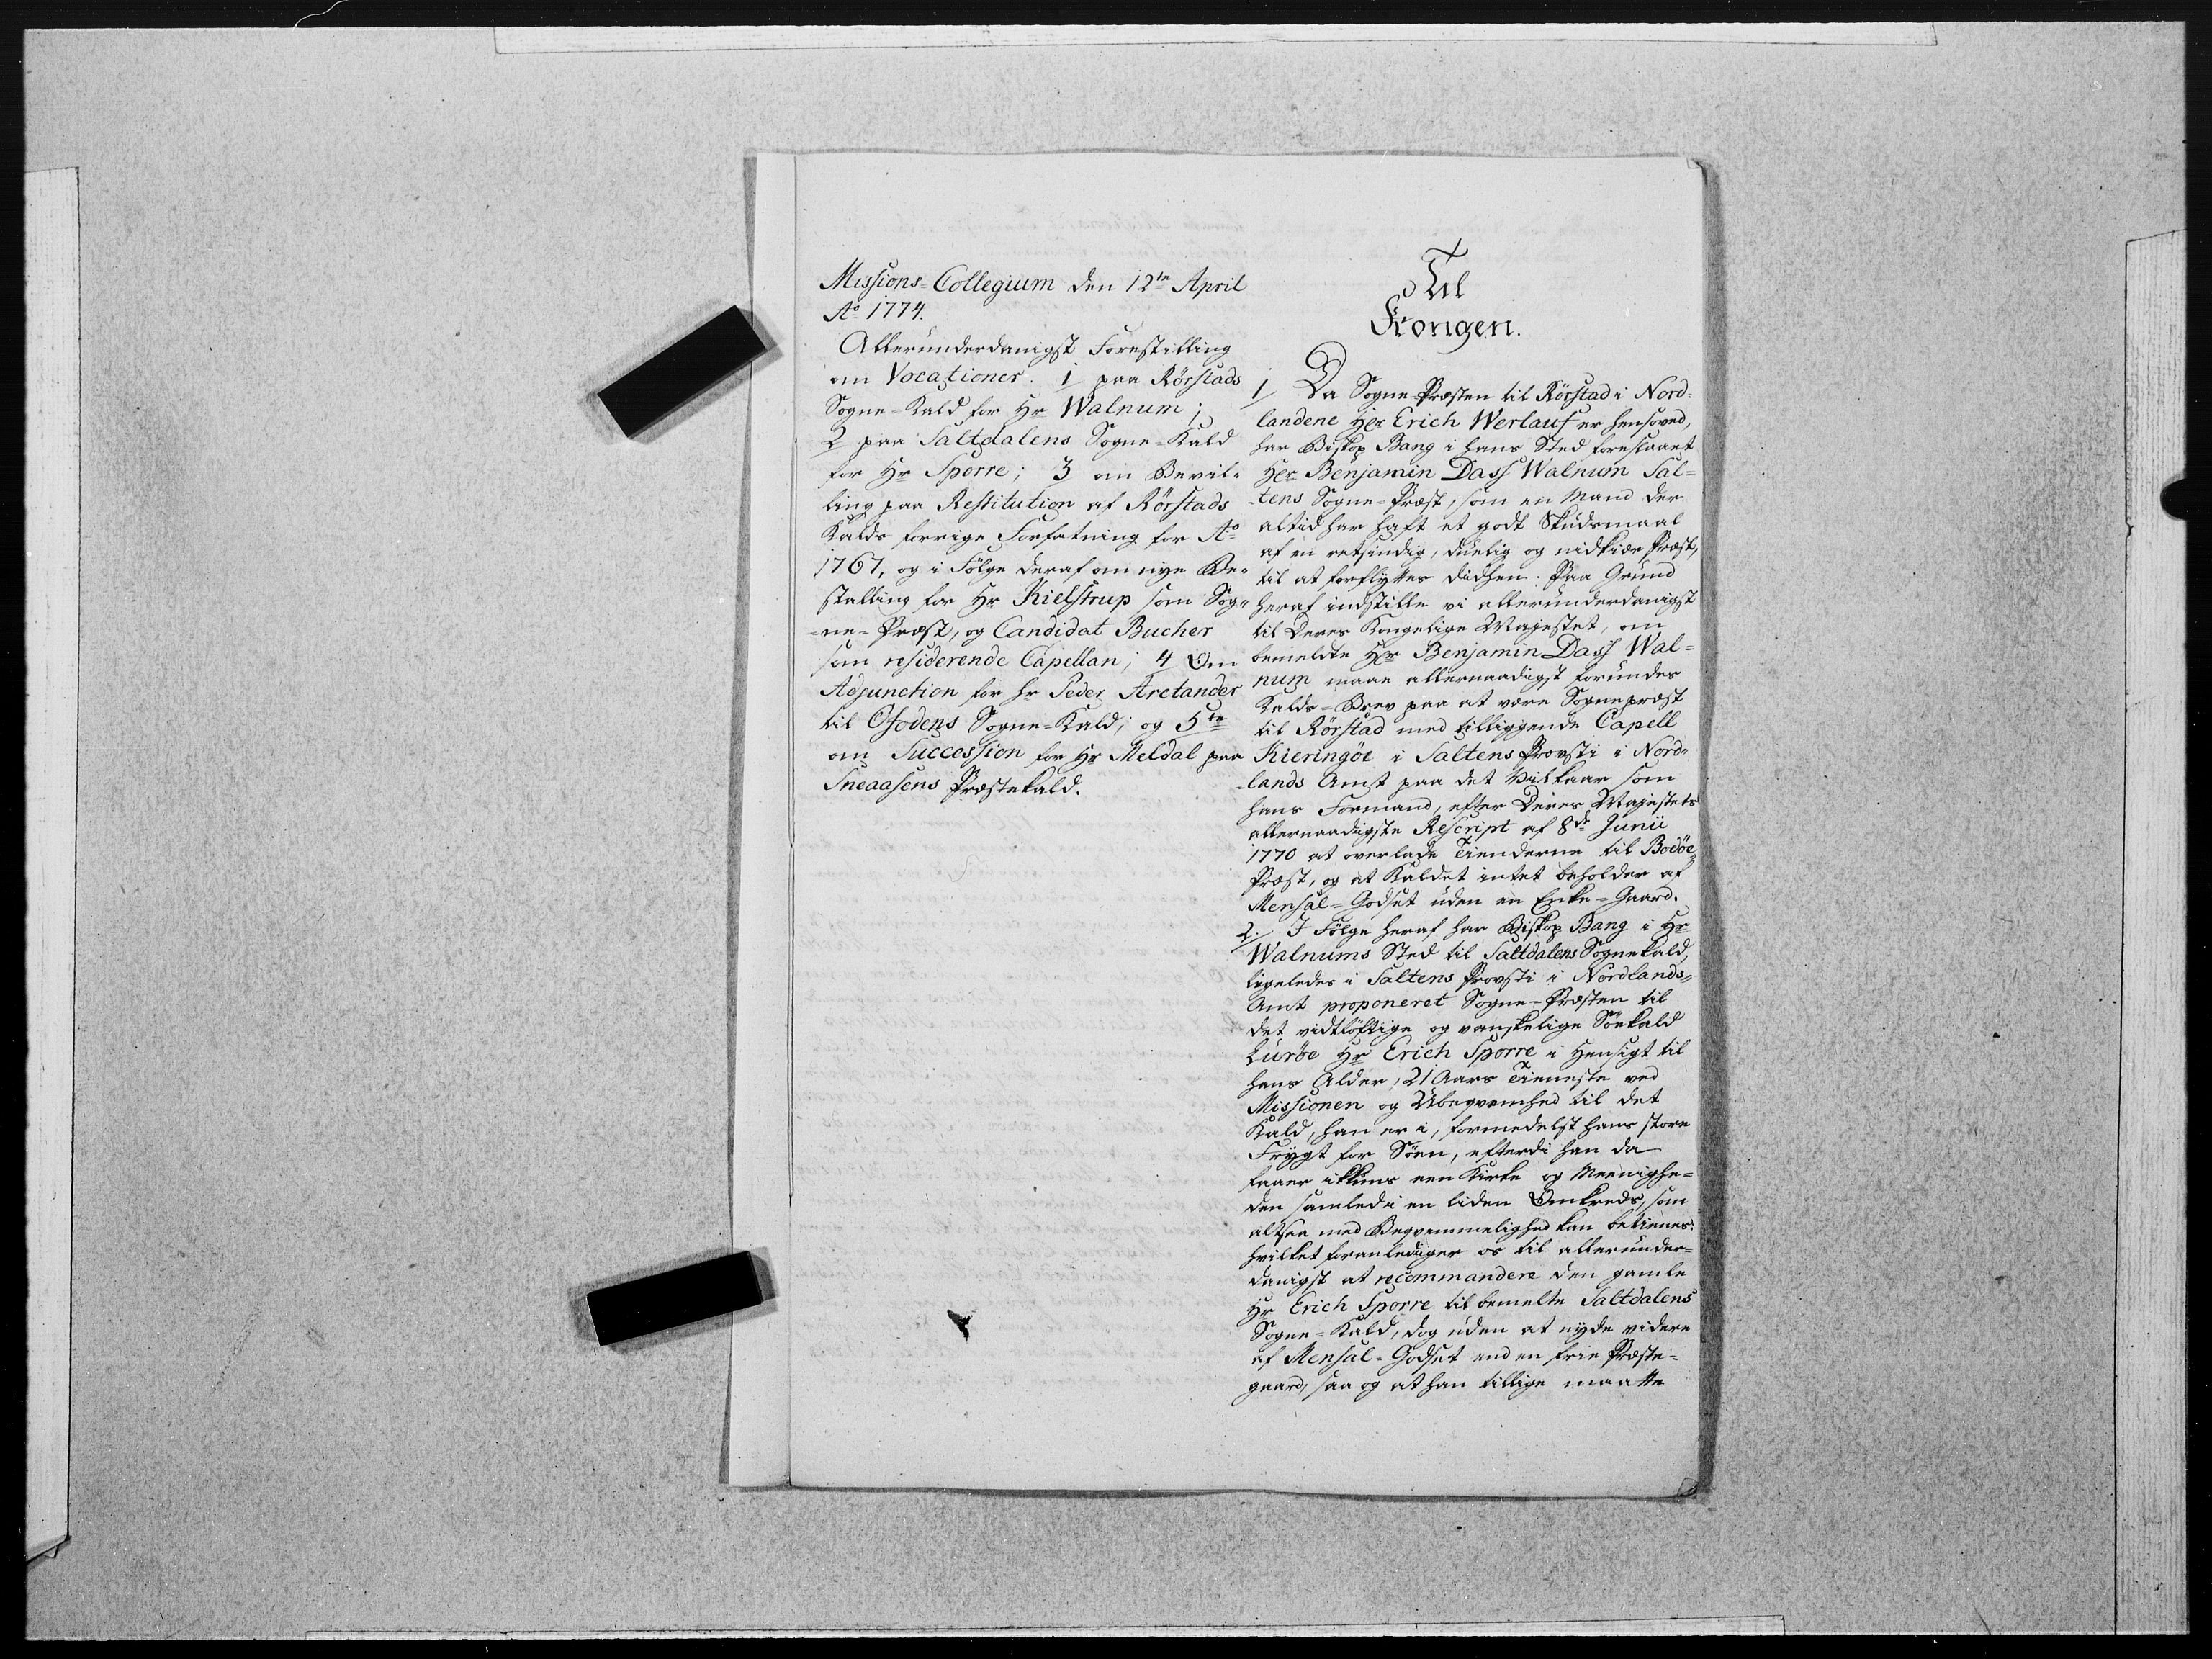 Missions-Collegium den 12te April
Ao 1774.
Allerunderdanigst Forestilling
om Vocationer. 1 paa Rörstads
Sogne-Kald for Hr Walnum;
2 paa Saltdalens Sogne-Kald
for Hr Sporre; 3 om Bevil-
ling paa Restitution af Rörstads
Kalds forrige Forfatning for Ao
1767, og i Fölge deraf om nye Be-
stalling for Hr Kielstrup som Sog-
ne-Præst, og Candidat Bucher
som residerende Capellan; 4 Om
Adjunction for Hr Peder Arctander
til Ofodens Sogne-Kald; og 5te
om Succession for Hr Meldal paa
Sneaasens Præstekald.
Til
Kongen.
1/ Da Sogne-Præsten til Rörstad i Nord-
landene Her Erich Werlauf er hensoved,
har Biskop Bang i hans Sted foreslaaet
Her Benjamin Dass Walnum Sal-
tens Sogne-Præst, som en Mand der
altid har haft et godt Skudsmaal
af en retsindig, duelig og nidkiær Præst,
til at forflyttes didhen. Paa Grund
heraf indstille vi allerunderdanigst
til Deres Kongelige Majestet, om
bemeldte Hr Benjamin Dass Wal-
num maae allernaadigst forundes
Kalds-Brev paa at være Sognepræst
til Rörstad med tilliggende Capell
Kieringöe i Saltens Provsti i Nord-
lands Amt paa det Vilkaar som
hans Formand, efter Deres Majestets
allernaadigste Rescript af 8de Junii
1770 at overlade Tienderne til Bodöe
Præst, og at Kaldet intet beholder af
Mensal-Godset uden en Enke-Gaard.
2. I Fölge heraf har Biskop Bang i Hr
Walnums Sted til Saltdalens Sognekald,
ligeledes i Saltens Provsti i Nordlands-
Amt proponeret Sogne-Præsten til
det vidtlöftige og vanskelige Söekald
Luröe Hr Erich Sporre i Hensigt til
hans Alder, 21 Aars Tieneste ved
Missionen og Ubeqvemhed til det
Kald, han er i, formedelst hans store
Frygt for Söen, efterdi han da
faaer ikkuns een Kirke og Meenighe-
den samled i en liden Omkreds, som
altsaa med Beqvemmelighed kan betienes:
hvilket foranlediger os til allerunder-
danigst at recommandere den gamle
Hr Erich Sporre til bemelte Saltdalens
Sogne-Kald, dog uden at nyde videre
af Mensal-Godset end en frie Præste-
gaard, saa og at han tillige maatte